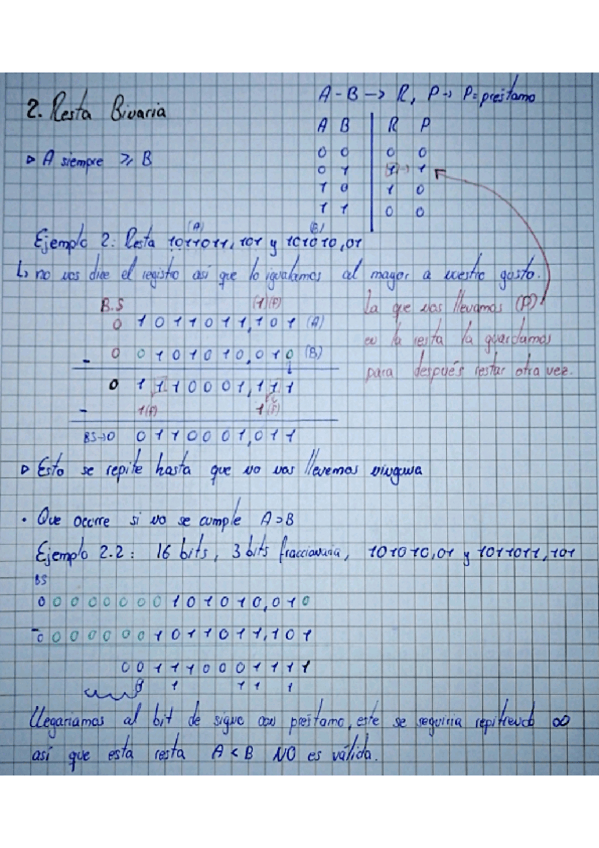 2. Resta Binaria
A - B → R, P → P = prestamo
A B | R P
0 0 | 0 0
0 1 | 1 → 1
1 0 | 1 0
1 1 | 0 0
▷ A siempre ⩾ B
(A) (B)
Ejemplo 2: Resta 1011011,101 y 101010,01
↳ no nos dice el registro así que lo igualamos al mayor a nuestro gusto.
B.S (1)(P)
0 1011011,101 (A)
- 0 0101010,010 (B)
0 1110001,111
- 1(P) 1(P)
BS→0 0110001,011
La que nos llevamos (P)
en la resta la guardamos
para después restar otra vez.
▷ Esto se repite hasta que no nos llevemos ninguna
• Que ocurre si no se cumple A>B
Ejemplo 2.2: 16 bits, 3 bits fraccionaria, 101010,01 y 1011011,101
BS
0 0000000101010,010
-0 0000001011011,101
001110001111
1 1 1 1
Llegariamos al bit de signo con prestamo, este se seguiria repitiendo ∞
así que esta resta A<B NO es válida.